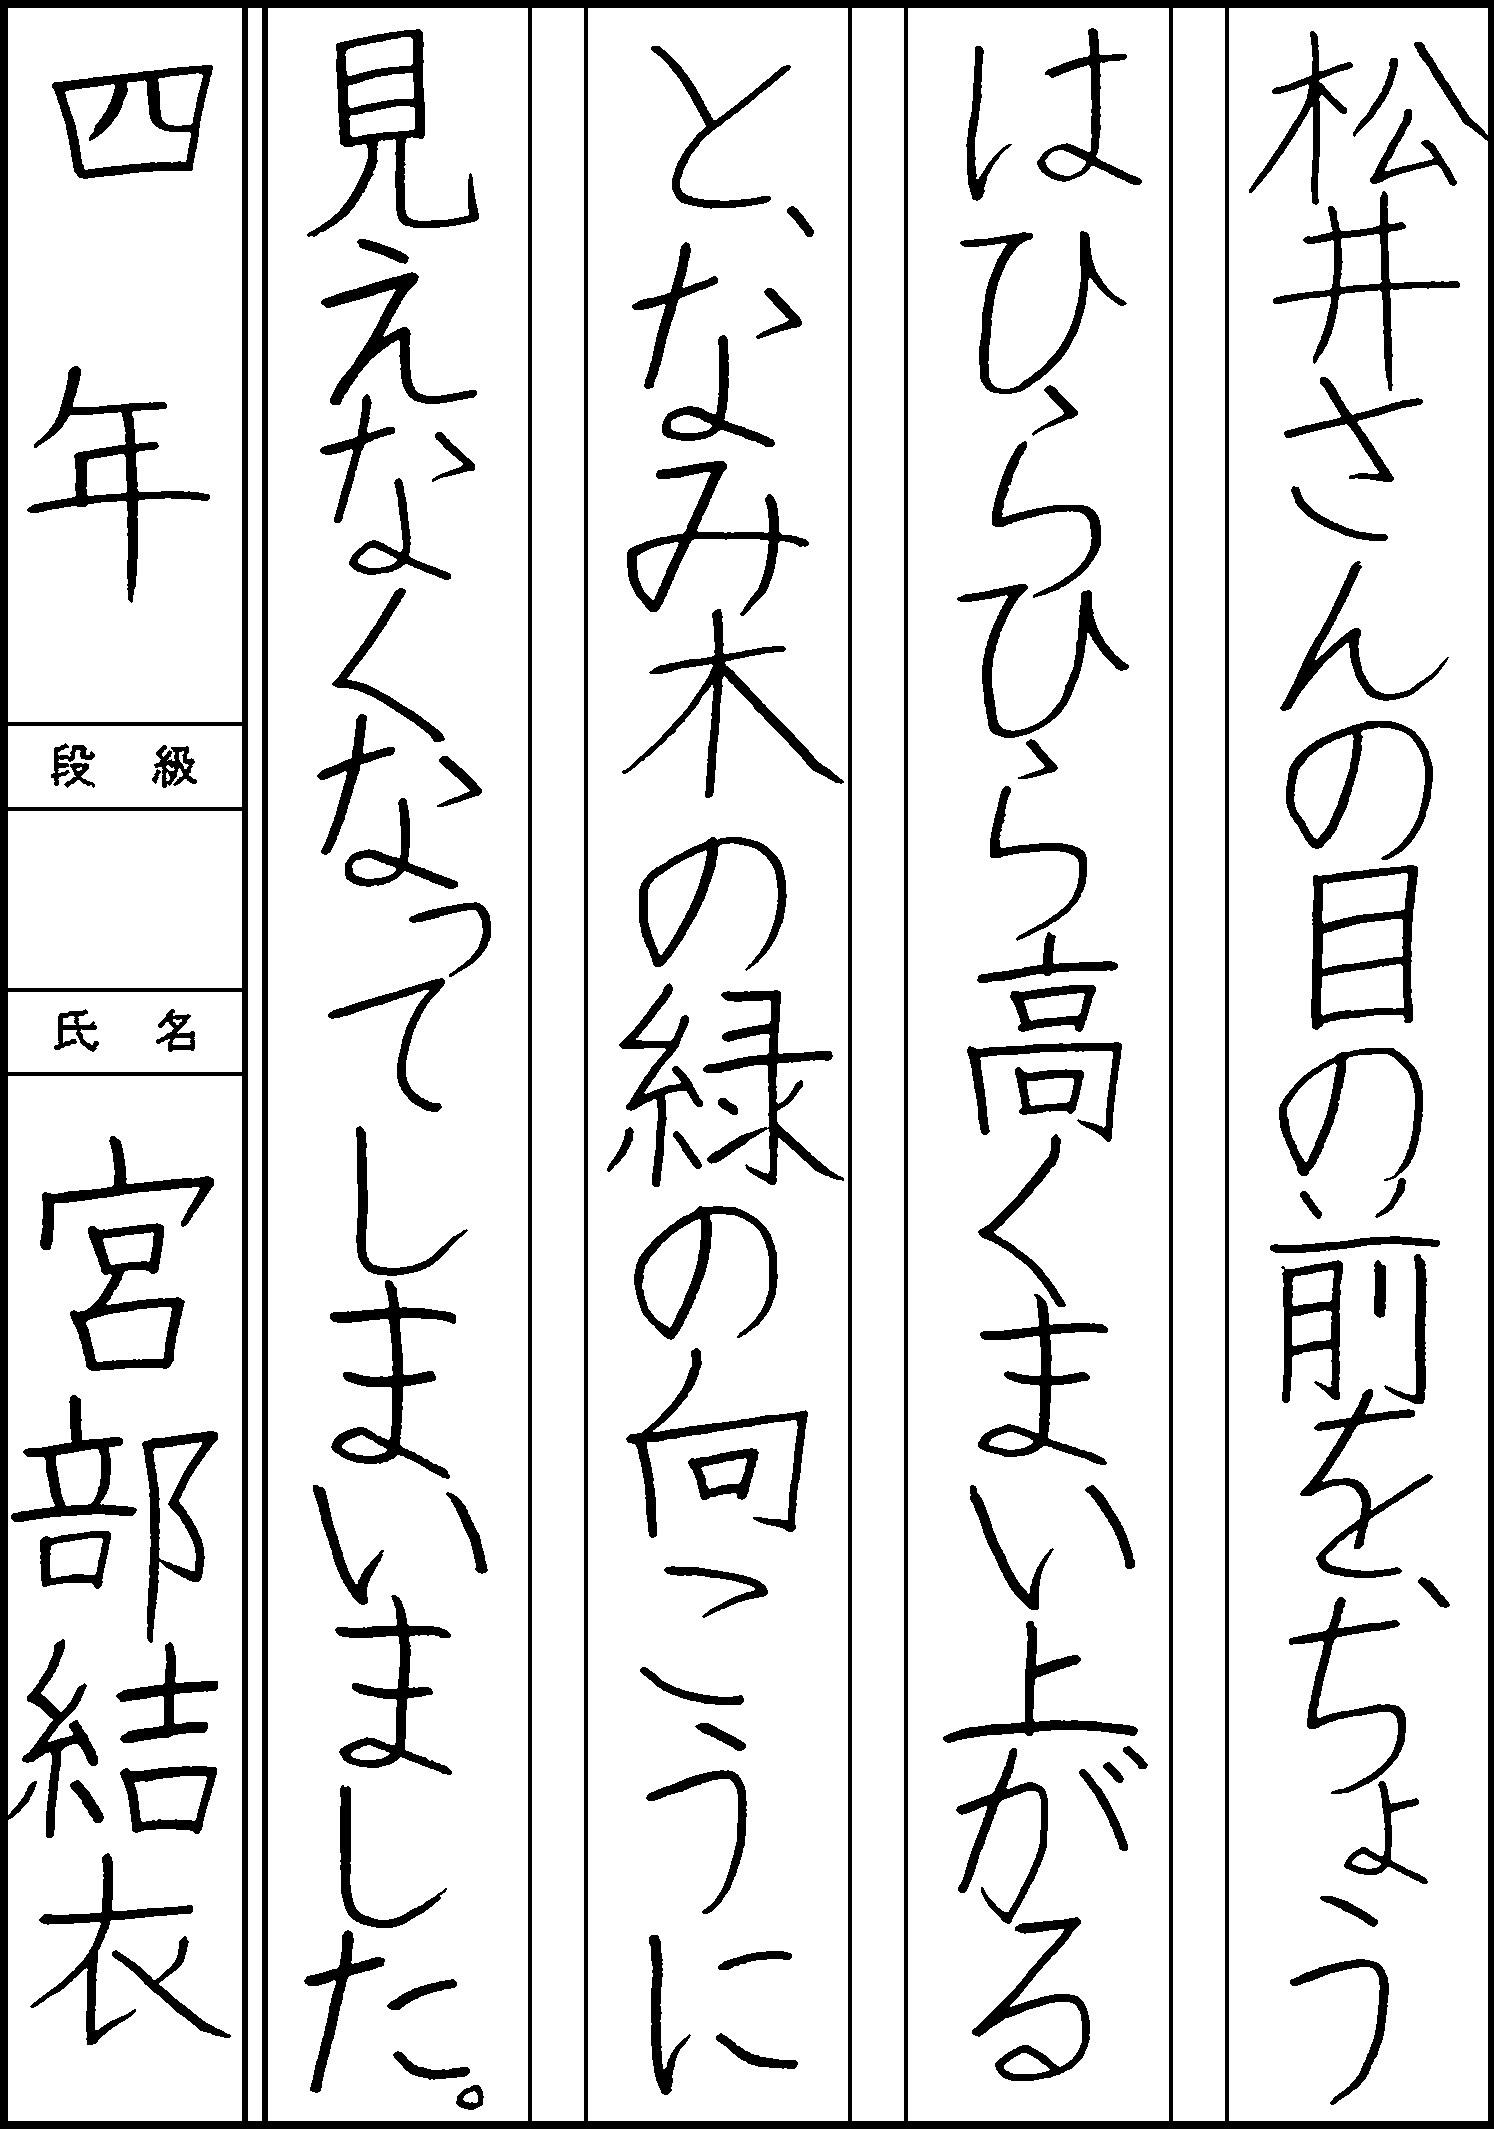 松井さんの目の前を、ちょう
はひらひら高くまい上がる
と、なみ木の緑の向こうに
見えなくなってしまいました。
四年
段級
氏名
宮部結衣